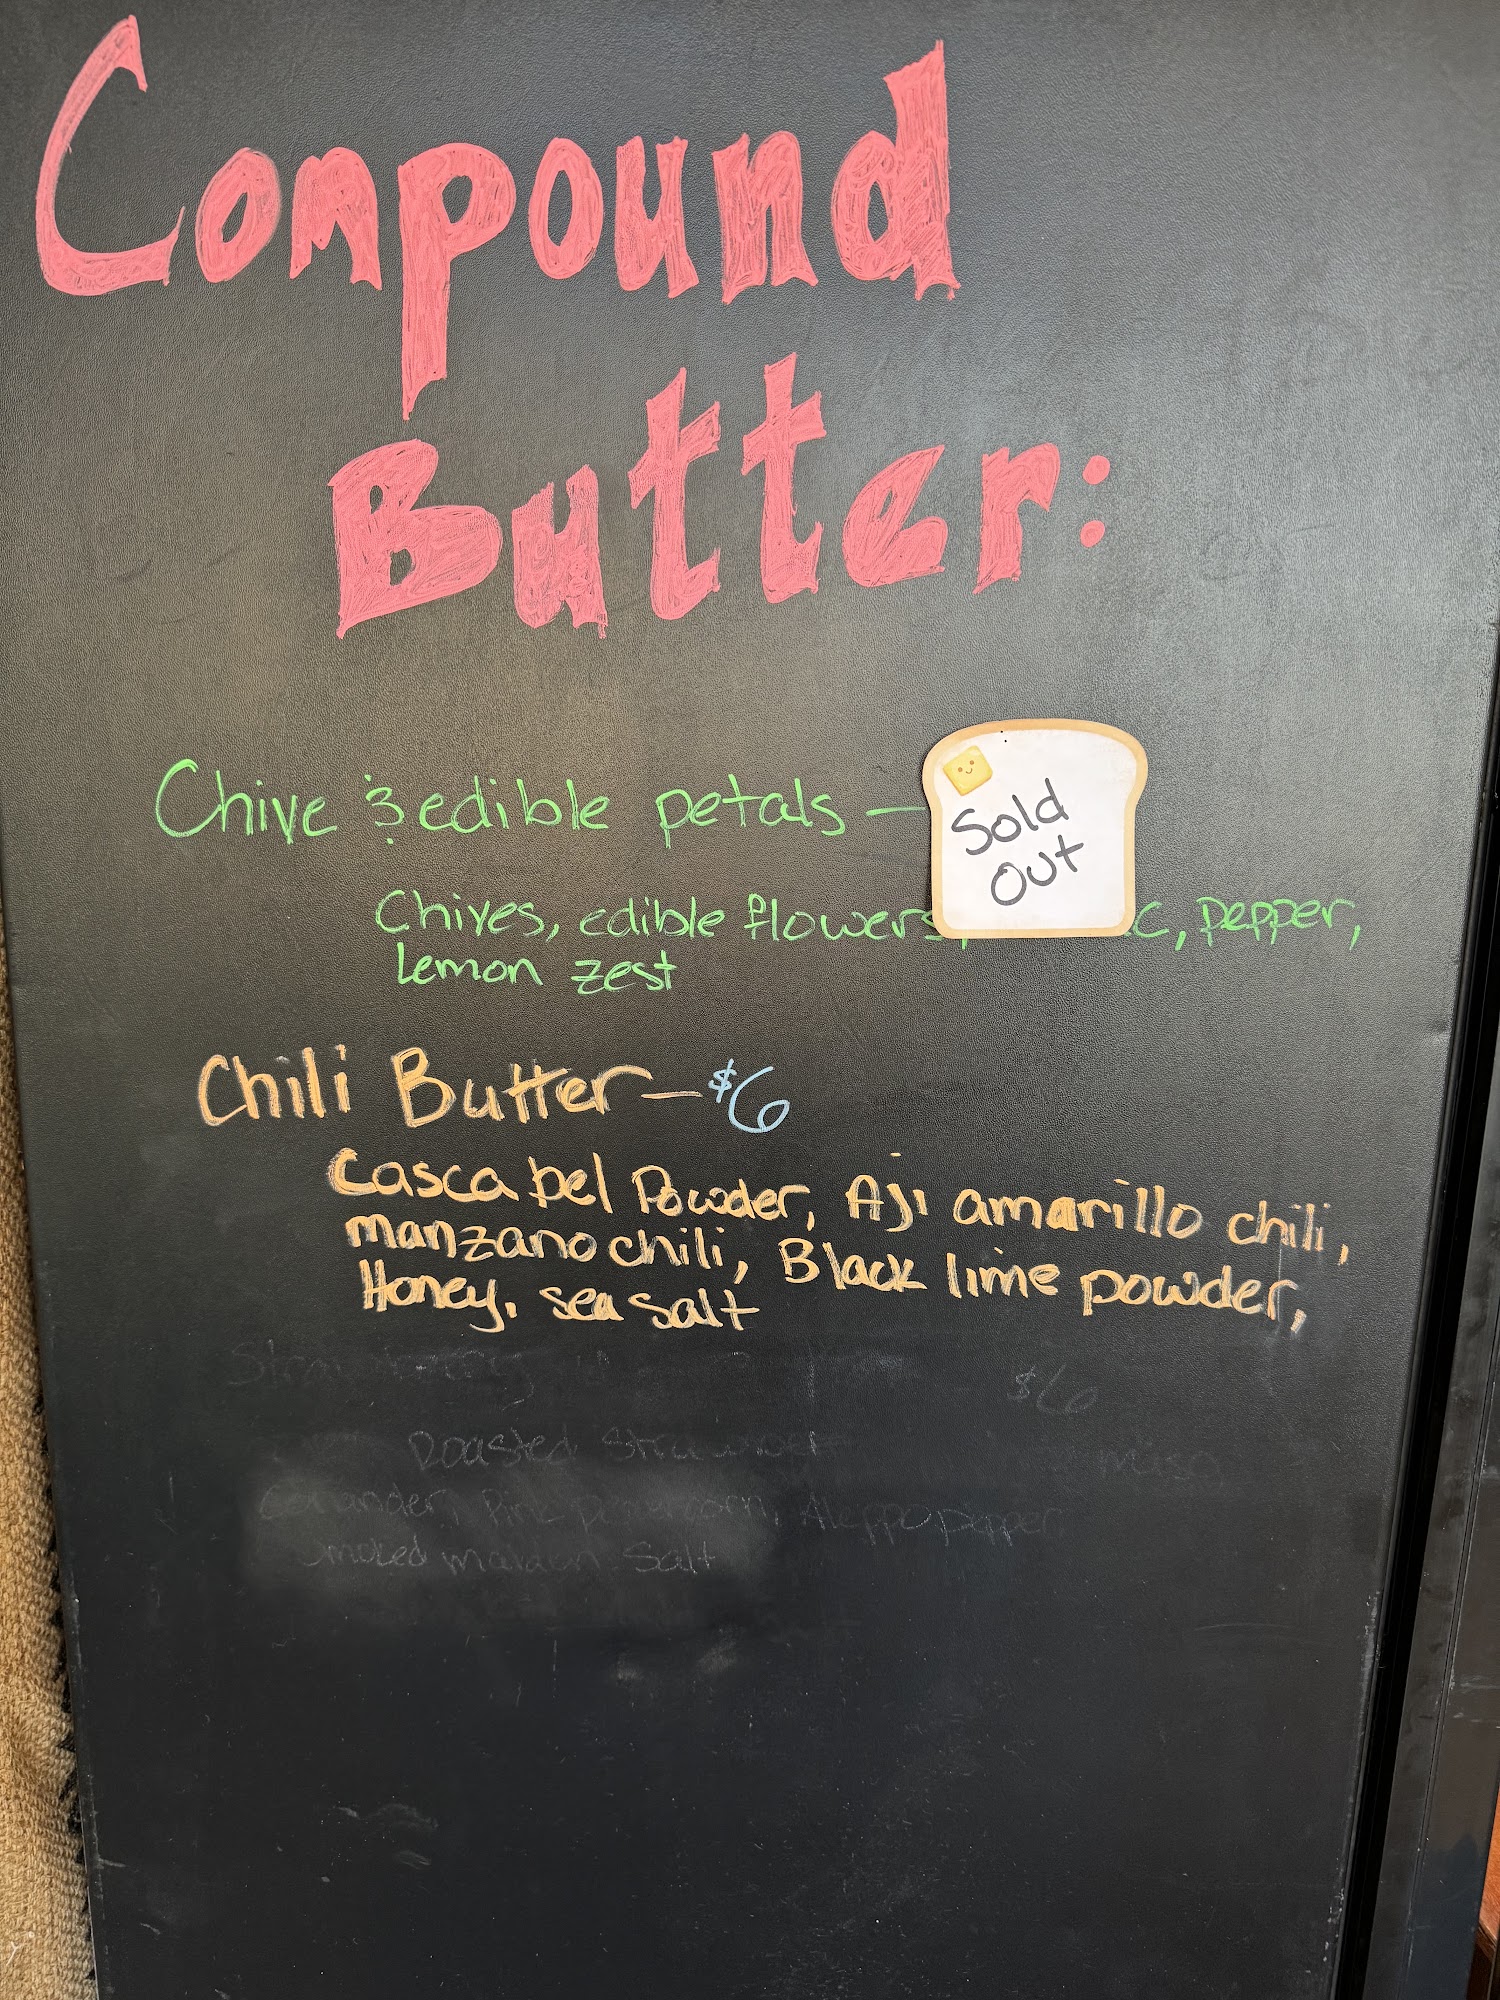 Compound
Butter:
Chive & edible petals —
Sold
Out
Chives, edible flowers, pepper,
Lemon zest
Chili Butter — $6
Cascabel Powder, Aji amarillo chili,
manzano chili, Black lime powder,
Honey, sea salt
Strawberry $6
Roasted miso
Coriander, Pink peppercorn, Aleppo pepper
Smoked maldon Salt